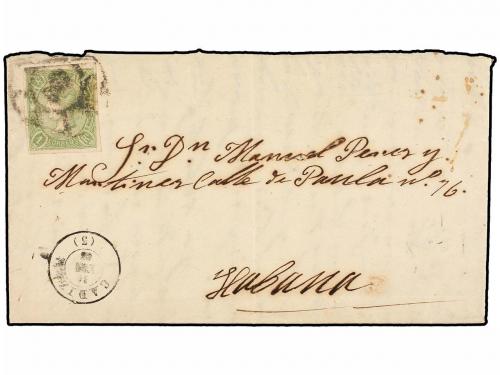 Sr. Dn. Manuel Perez y.
Martinez Calle de Paula nº. 76.
Habana
CADIZ
(3)